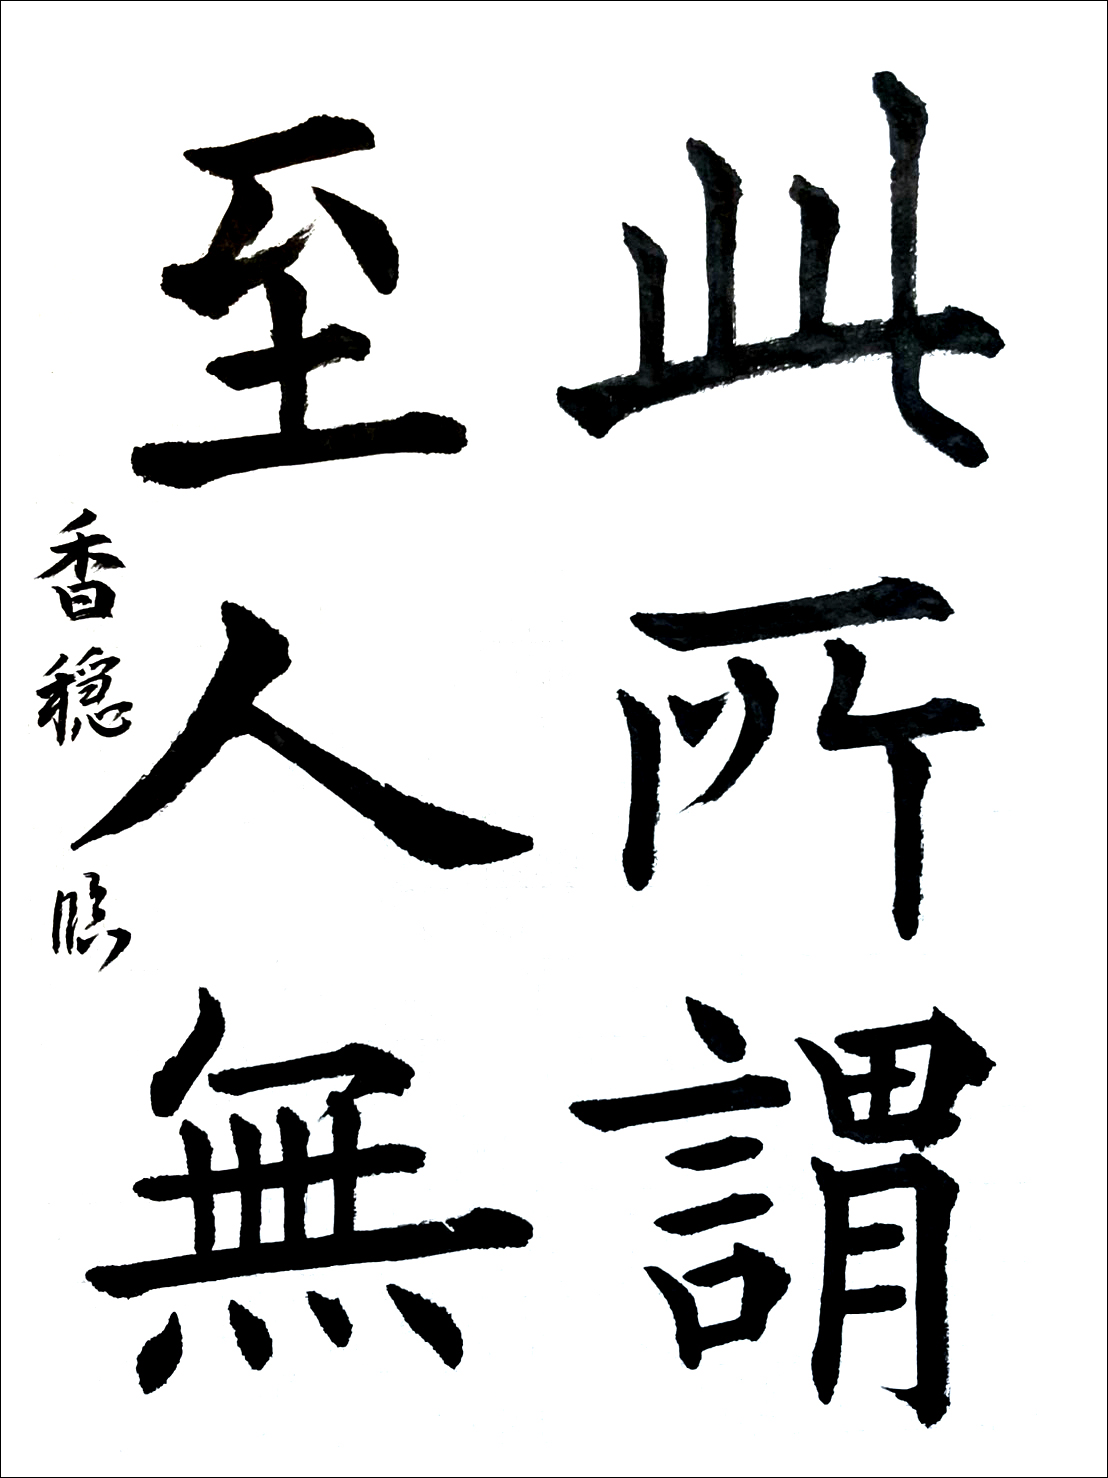 此所謂
至人無
香穏臨